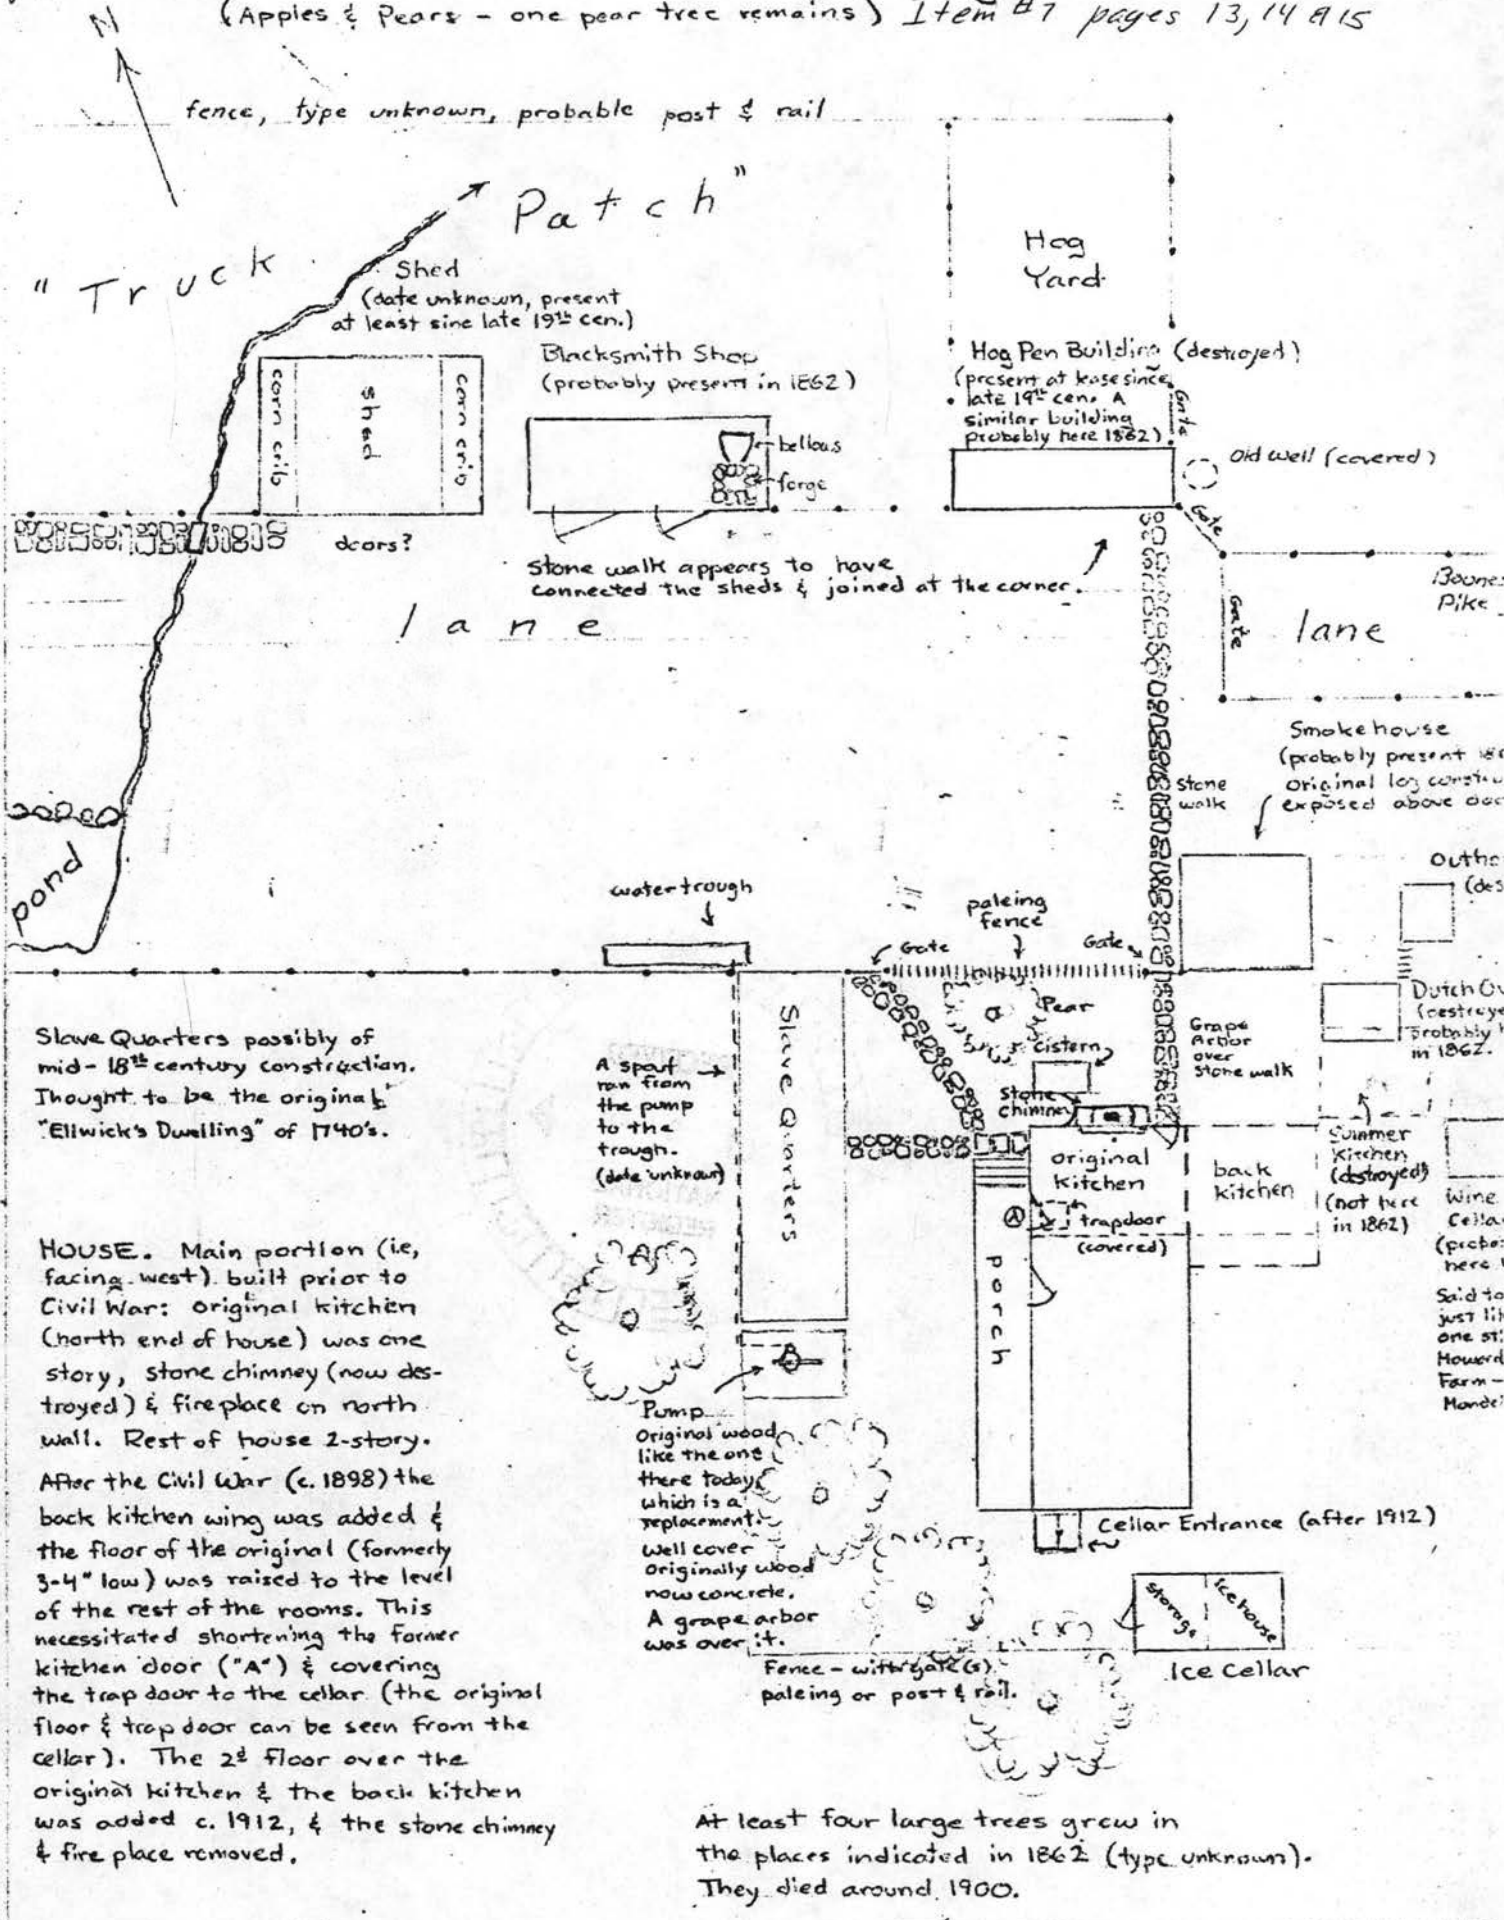 (Apples & Pears - one pear tree remains) Item #7 pages 13, 14 & 15
N
fence, type unknown, probable post & rail
"Truck Patch"
Shed
(date unknown, present
at least sine late 19th cen.)
corn crib
shed
corn crib
doors?
Blacksmith Shop
(probably present in 1862)
bellows
forge
Hog
Yard
Hog Pen Building (destroyed)
(present at lease since
late 19th cen. A
similar building
probably here 1862)
Gate
Old well (covered)
Gate
Stone walk appears to have
connected the sheds & joined at the corner.
lane
Gate
lane
Pike
Smokehouse
(probably present
original log
exposed above
stone
walk
pond
watertrough
Gate
paleing
fence
Gate
Pear
Cistern
Stone
chimney
Grape
Arbor
over
Stone walk
Dutch
probably
in 1862.
Slave Quarters possibly of
mid-18th century construction.
Thought to be the original
"Ellwick's Dwelling" of 1740's.
A spout
ran from
the pump
to the
trough.
(date unknown)
Slave Quarters
original
kitchen
back
kitchen
Summer
Kitchen
(destroyed)
(not here
in 1862)
A
trapdoor
(covered)
porch
Wine
here
Said to
just
one
Howard
Farm-
HOUSE. Main portion (i.e,
facing west) built prior to
Civil War: original kitchen
(north end of house) was one
story, stone chimney (now des-
troyed) & fireplace on north
wall. Rest of house 2-story.
After the Civil War (c. 1898) the
back kitchen wing was added &
the floor of the original (formerly
3-4" low) was raised to the level
of the rest of the rooms. This
necessitated shortening the former
kitchen door ("A") & covering
the trap door to the cellar (the original
floor & trap door can be seen from the
cellar). The 2d floor over the
original kitchen & the back kitchen
was added c. 1912, & the stone chimney
& fire place removed.
Pump
Original wood
like the one
there today
which is a
replacement.
Well cover
originally wood
now concrete.
A grape arbor
was over it.
Cellar Entrance (after 1912)
storage
Ice house
Ice Cellar
Fence - with gate(s)
paleing or post & rail.
At least four large trees grew in
the places indicated in 1862 (type unknown).
They died around 1900.